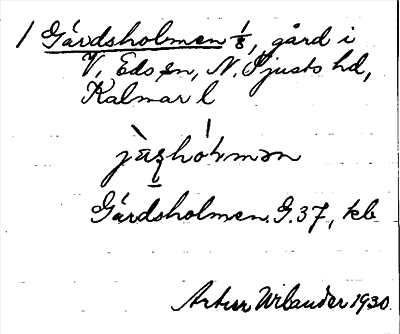 / Gårdsholmen 1/8, gård i
V. Eds sn, N. Tjusts hd,
Kalmar l
Gårdsholmen. G.37, kb
Artur Wilander 1930.